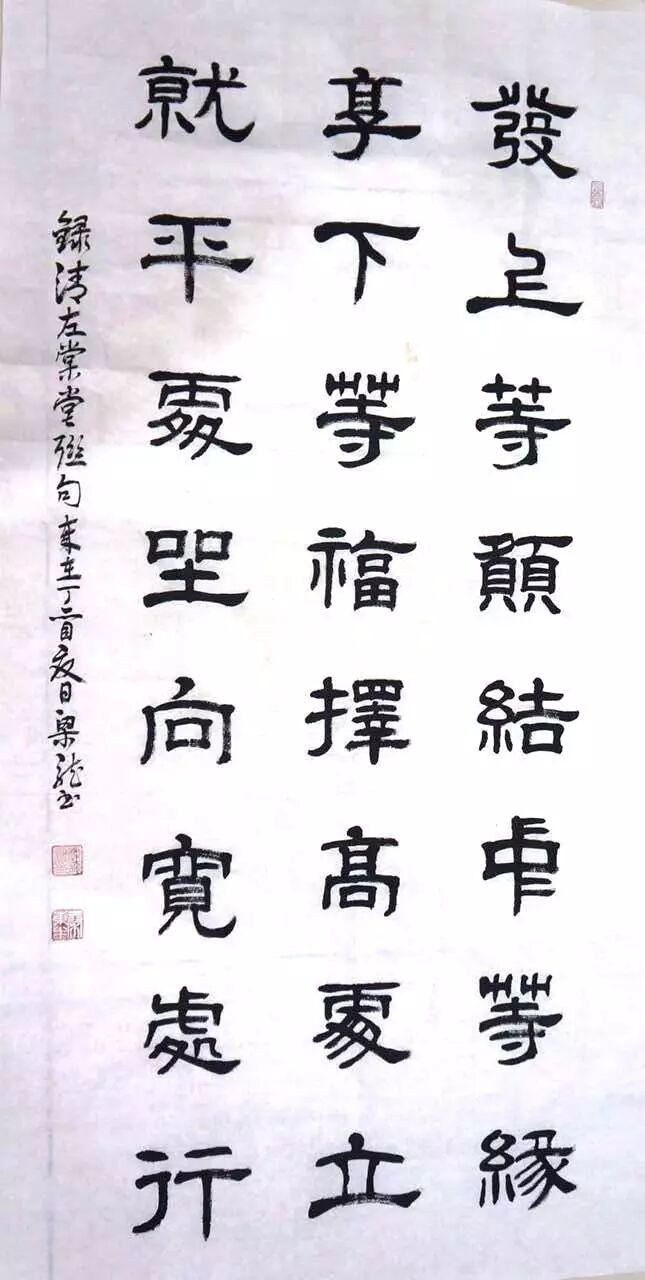 發上等願結中等緣
享下等福擇高處立
就平處坐向寬處行
錄清左棠堂聯句 梁龍書